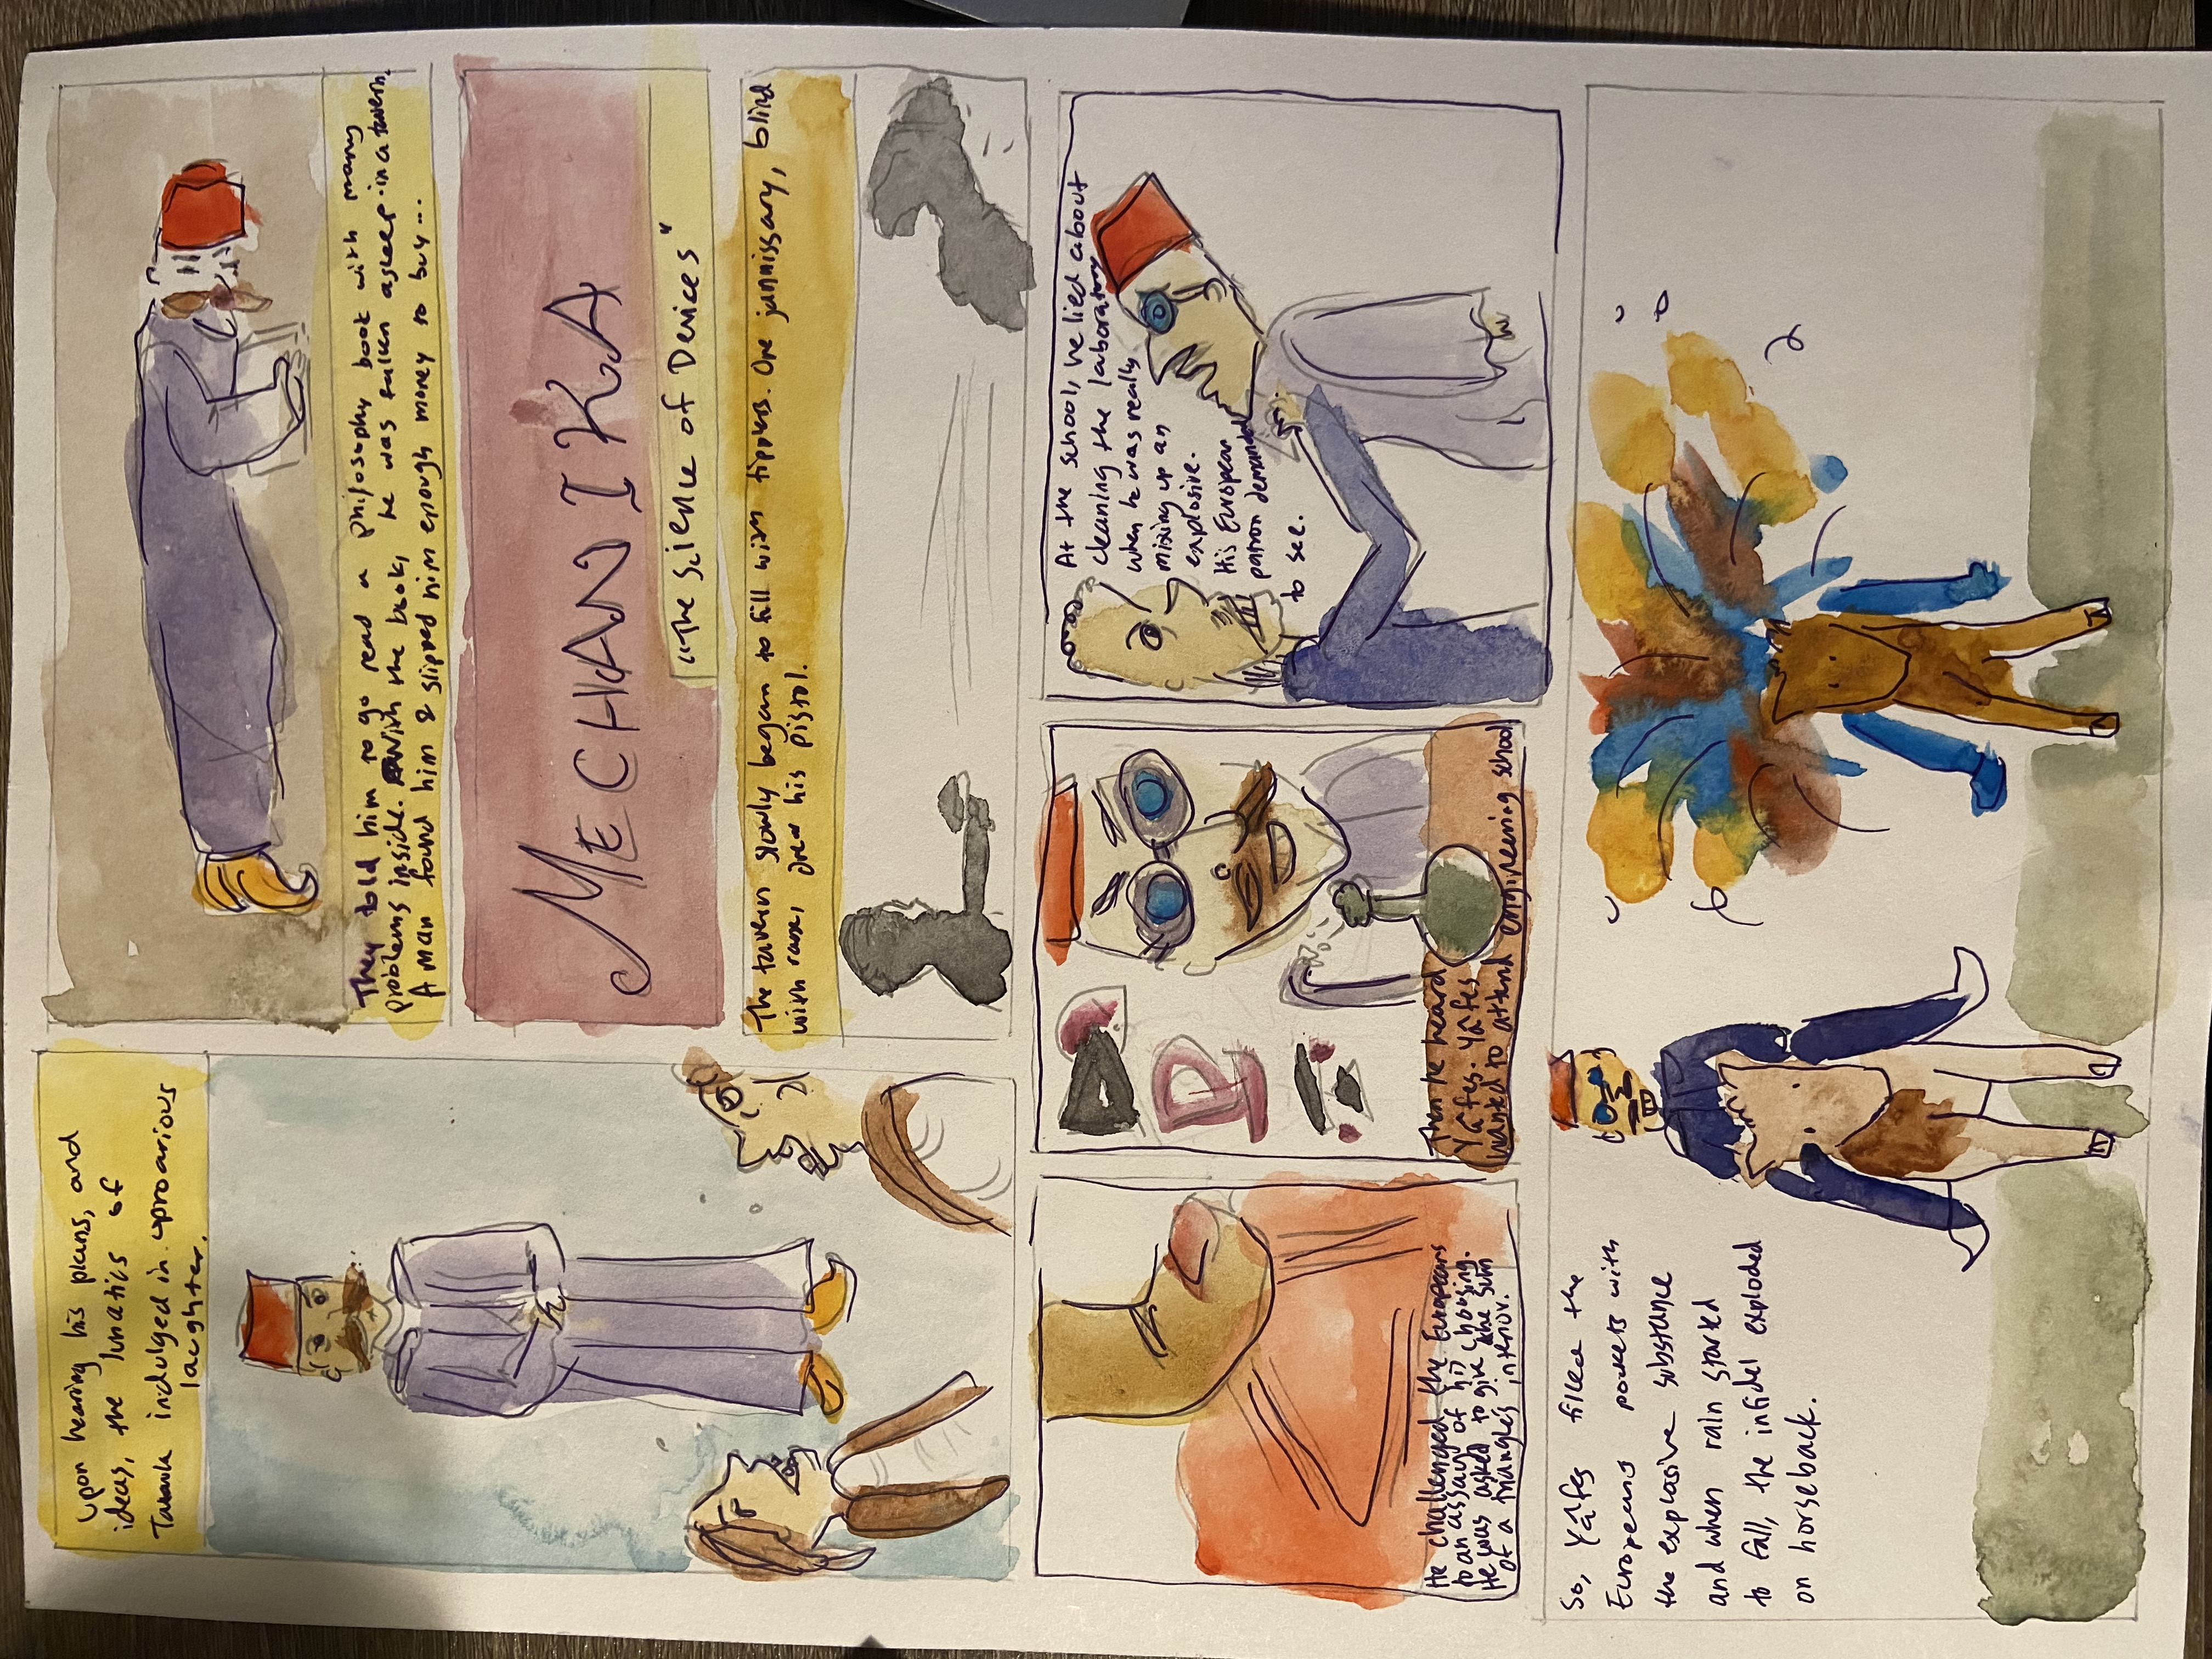 Upon hearing his plans, and
ideas, the lunatics of
indulged in uproarious
laughter.
They told him to go read a philosophy book with many
problems inside. With the book, he was fallen asleep in a tavern.
A man found him & slipped him enough money to buy...
MECHANIKA
"The Science of Devices"
The tavern slowly began to fill with tipplers. One jannissary, blind
with rage, drew his pistol.
He challenged the Europeans
to an assay of his choosing.
He was asked to give the sum
of a triangle's interior.
Then he heard
Yâfes. Yâfes
wanted to attend engineering school
At the school, he lied about
cleaning the laboratory
when he was really
mixing up an
explosive.
His European
patron demanded
to see.
So, Yâfes filled the
Europeans pockets with
the explosive substance
and when rain started
to fall, the infidel exploded
on horseback.